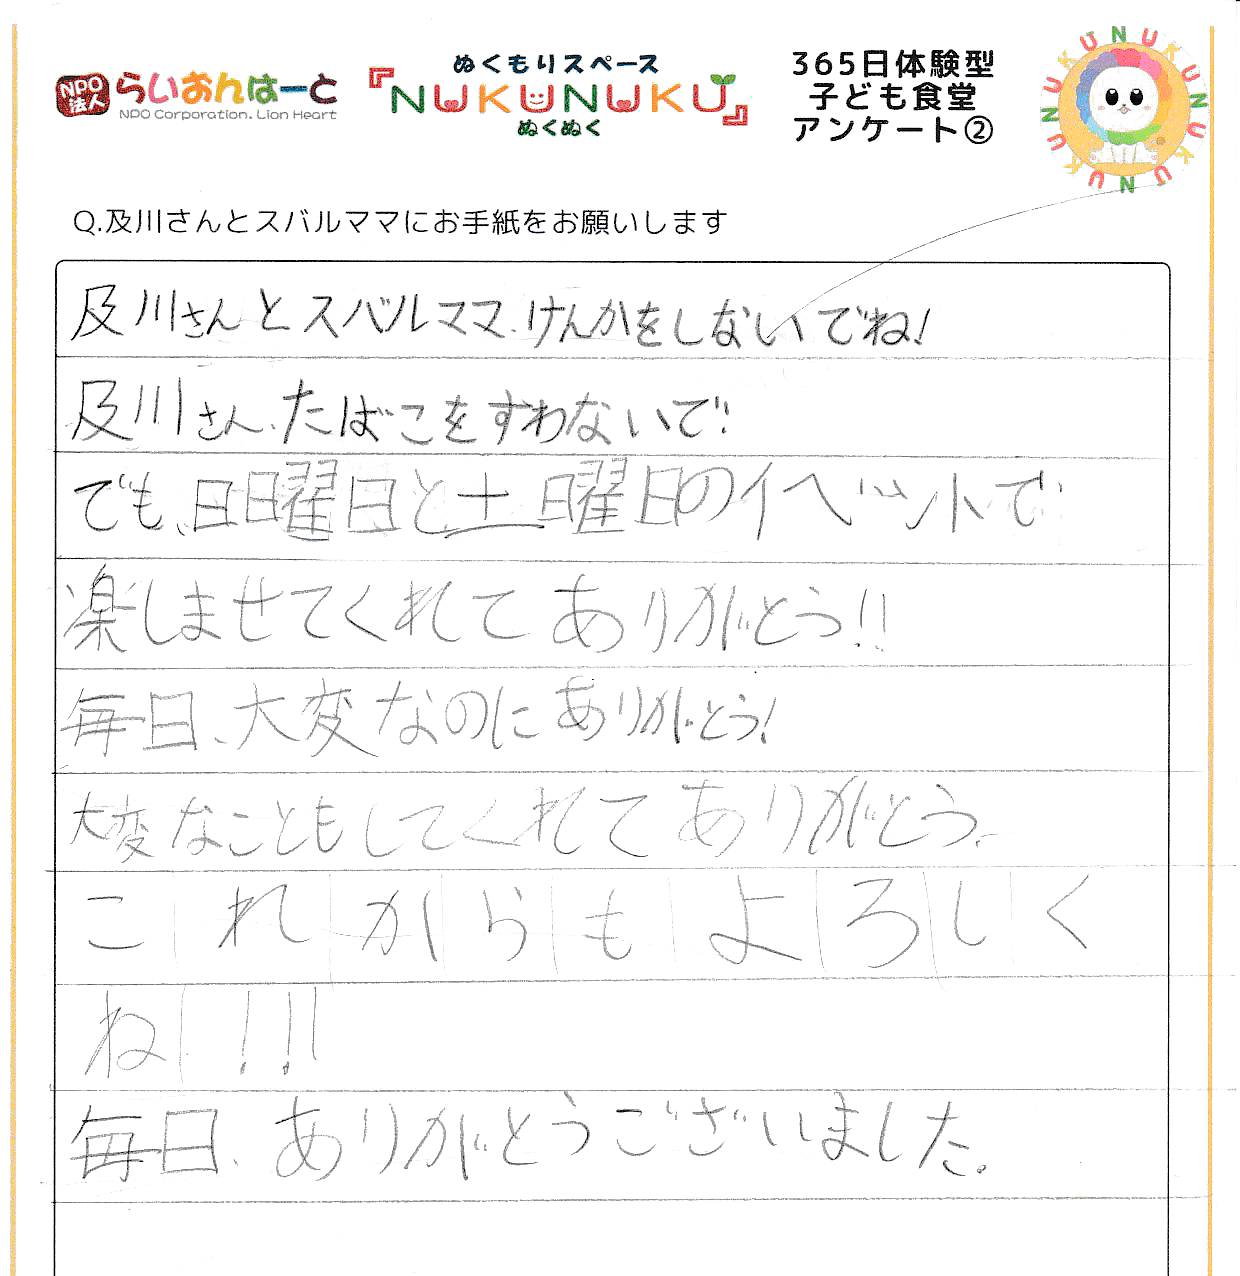 NPO法人 らいおんはーと
NPO Corporation. Lion Heart
ぬくもりスペース
『NUKUNUKU』
ぬくぬく
365日体験型
子ども食堂
アンケート②
NUKUNUKUNUKUNUKU
Q.及川さんとスバルママにお手紙をお願いします
及川さんとスバルママ、けんかをしないでね!
及川さん、たばこをすわないで!!
でも、日日曜日と土曜日のイベントで
楽しませてくれてありがとう!!
毎日、大変なのにありがとう!
大変なこともしてくれてありがとう。
これからもよろしく
ね!!!
毎日、ありがとうございました。